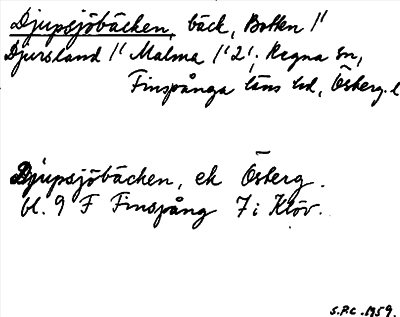 Djupsjöbäcken, bäck, Botten 1/1
Djursland 1/1 Malma 1/2, Regna sn,
Finspånga läns hd, Österg. l
Djupsjöbäcken, ek Österg.
bl. 9 F Finspång 7 i Klöv.
S.P.C. 1959.